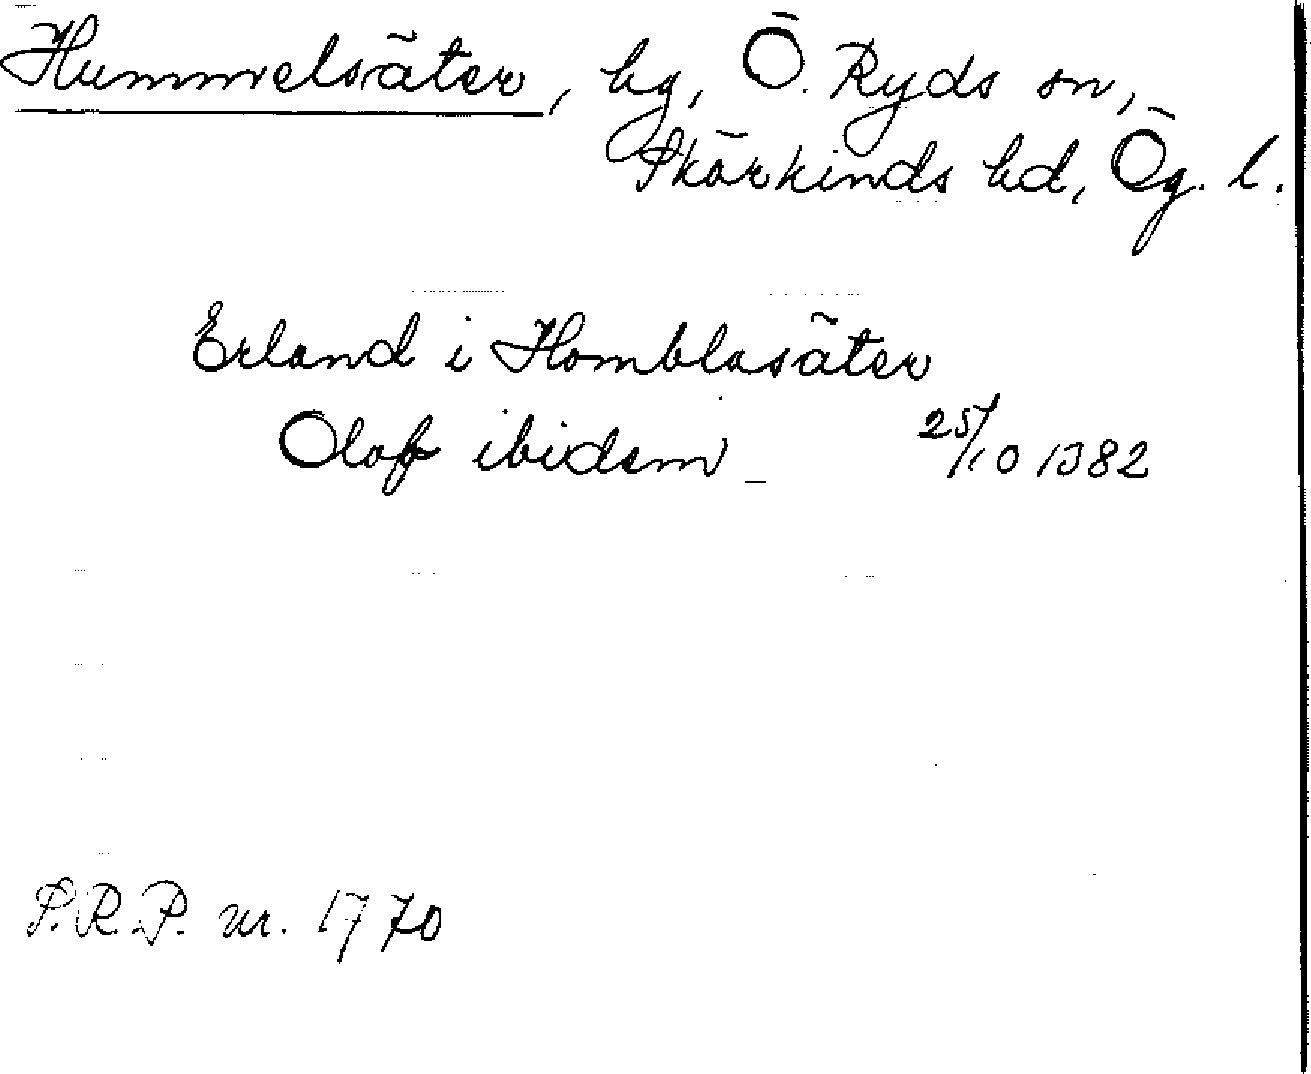 Hummelsäter, hg, Ö. Ryds sn,
Skärkinds hd, Ög. l.
Erland i Homblasäter
Olaff ibidem 25/10 1382
S.R.P. nr. 1770